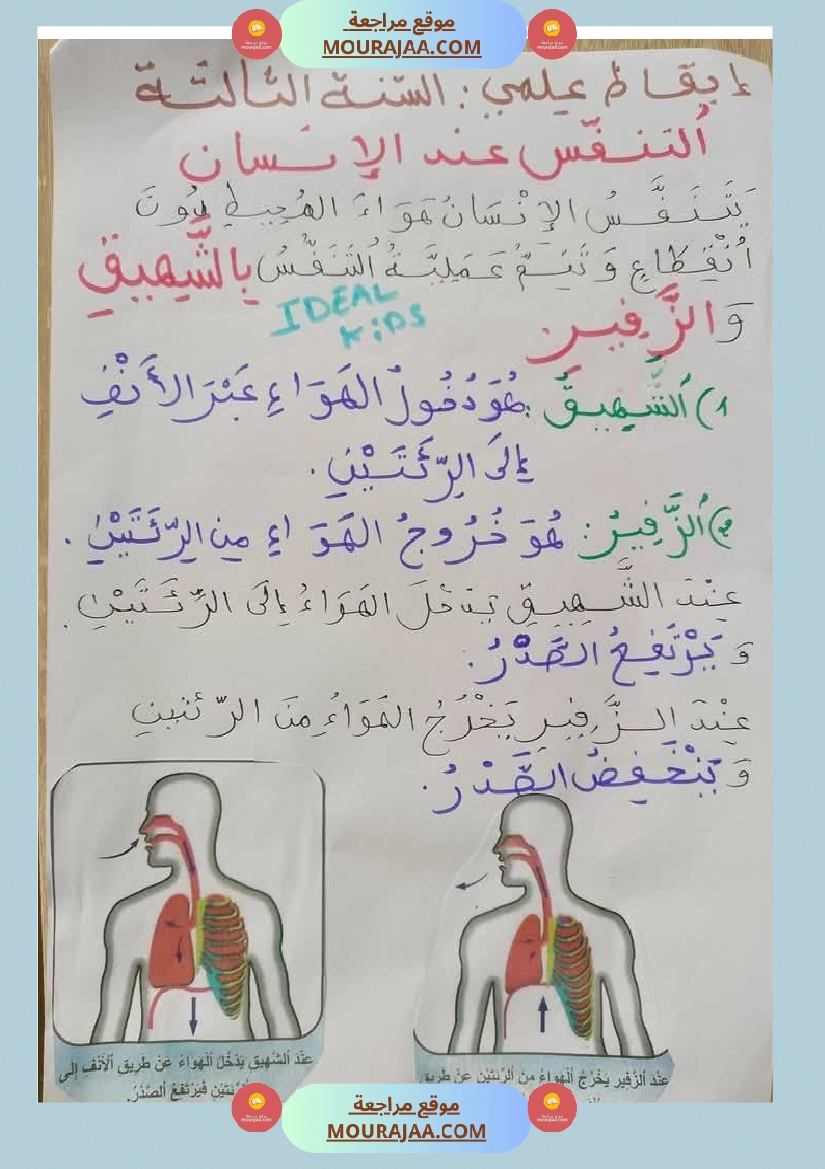 موقع مراجعة
MOURAJAA.COM
إيقاظ علمي : السّنة الثّالثة
اُلتنفّس عند الإنسان
يَتَنَفَّسُ الإِنْسَانُ هَوَاءَ المُحِيطِ دُونَ
اُنْقِطَاعٍ وَ تَتِمُّ عَمَلِيَّةُ اُلتَنَفُّسُ بِالشَّهِيقِ
وَ الزَّفِيرِ.
IDEAL
KiDS
1) اُلشَّهِيقُ : هُوَ دُخُولُ الهَوَاءِ عَبْرَ الأَنْفِ
إِلَى الرِّئَتَيْنِ.
2) اُلزَّفِيرُ : هُوَ خُرُوجُ الهَوَاءِ مِنَ الرِّئَتَيْنِ.
عِنْدَ الشَّهِيقِ يَدْخُلُ الهَوَاءُ إِلَى الرِّئَتَيْنِ.
وَ يَرْتَفِعُ الصَّدْرُ.
عِنْدَ الزَّفِيرِ يَخْرُجُ الهَوَاءُ مِنَ الرّئتينِ
وَ يَنْخَفِضُ الصَّدْرُ.
عِنْدَ اُلشَّهِيقِ يَدْخُلُ اُلْهَوَاءُ عَنْ طَرِيقِ اُلْأَنْفِ إِلَى
اُلرِّئَتَيْنِ فَيَرْتَفِعُ اُلصَّدْرُ.
عِنْدَ اُلزَّفِيرِ يَخْرُجُ اُلْهَوَاءُ مِنَ اُلرِّئَتَيْنِ عَنْ طَرِيقِ
موقع مراجعة
MOURAJAA.COM